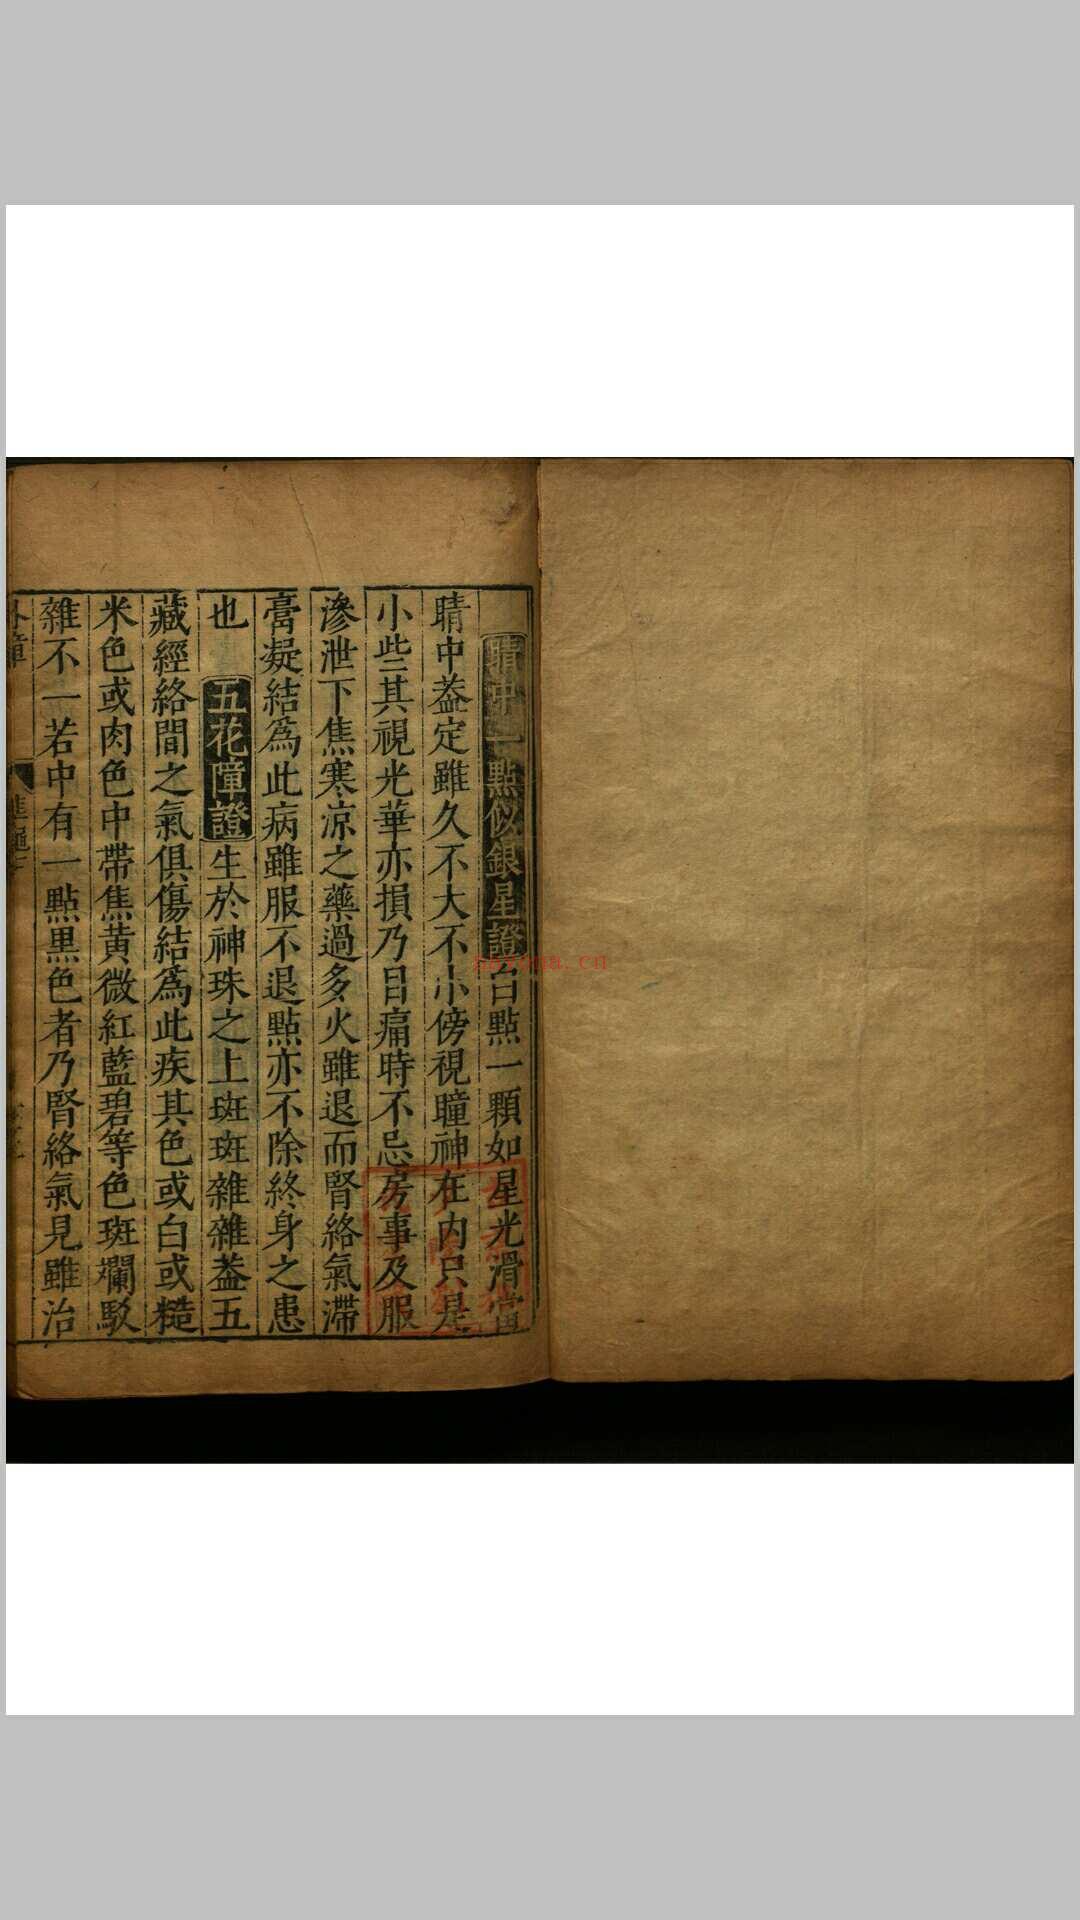 睛中一點似銀星證白點一顆如星光滑當
睛中葢定雖久不大不小傍視瞳神在内只是
小些其視光華亦損乃目痛時不忌房事及服
滲泄下焦寒凉之藥過多火雖退而腎絡氣滯
膏凝結爲此病雖服不退點亦不除終身之患
也 五花障證生於神珠之上斑斑雜雜葢五
藏經絡間之氣俱傷結爲此疾其色或白或糙
米色或肉色中帶焦黄微紅藍碧等色斑斕駁
雜不一若中有一點黒色者乃腎絡氣見雖治